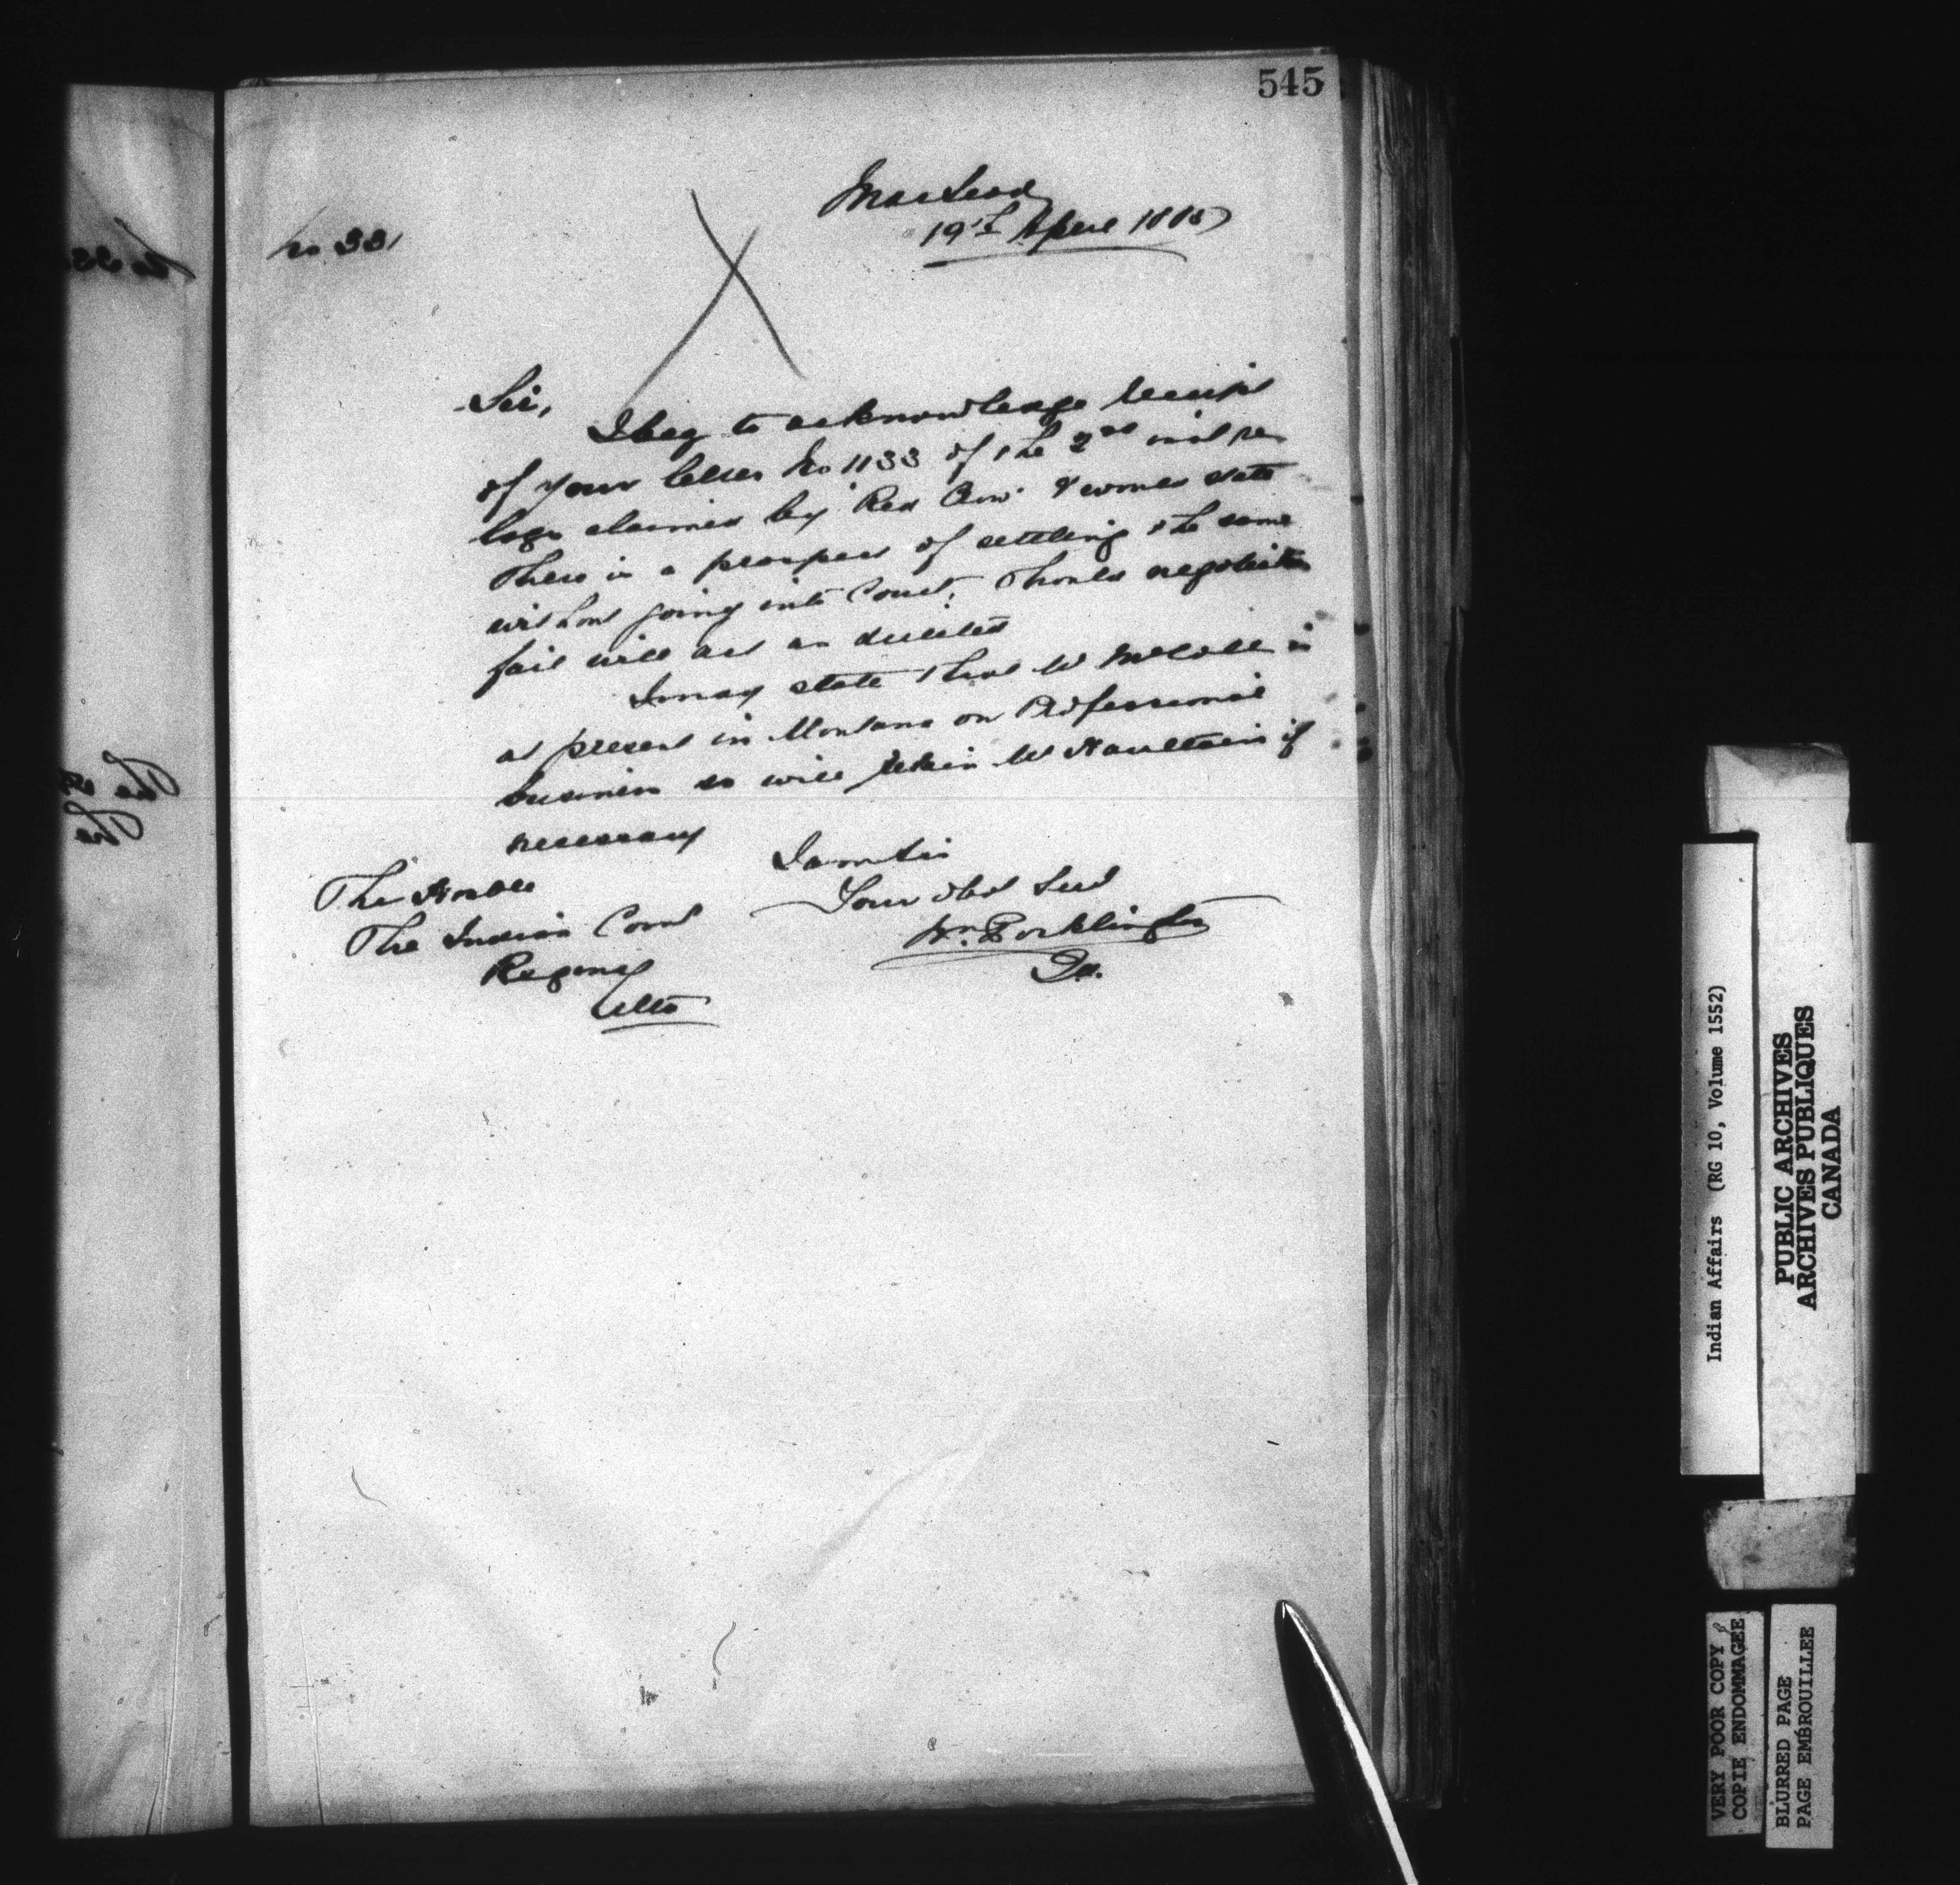 545
MacLeod
19th April 1885
No 331
Sir,
I beg to acknowledge receipt
of your letter No 1133 of the 2nd inst re
logs claimed by Red Crow & would state
There is a prospect of settling the same
without going into Court. Should negotiation
fail will act as directed
I may state that Mr McCall is
at present in Montana on Professional
business so will retain Mr Haultain if
necessary
I am Sir
Your obed Servt
Wm Pocklington
The Honble
The Indian Comr
Regina
Indian Affairs (RG 10, Volume 1552)
PUBLIC ARCHIVES
ARCHIVES PUBLIQUES
CANADA
VERY POOR COPY
COPIE ENDOMMAGEE
BLURRED PAGE
PAGE EMBROUILLEE